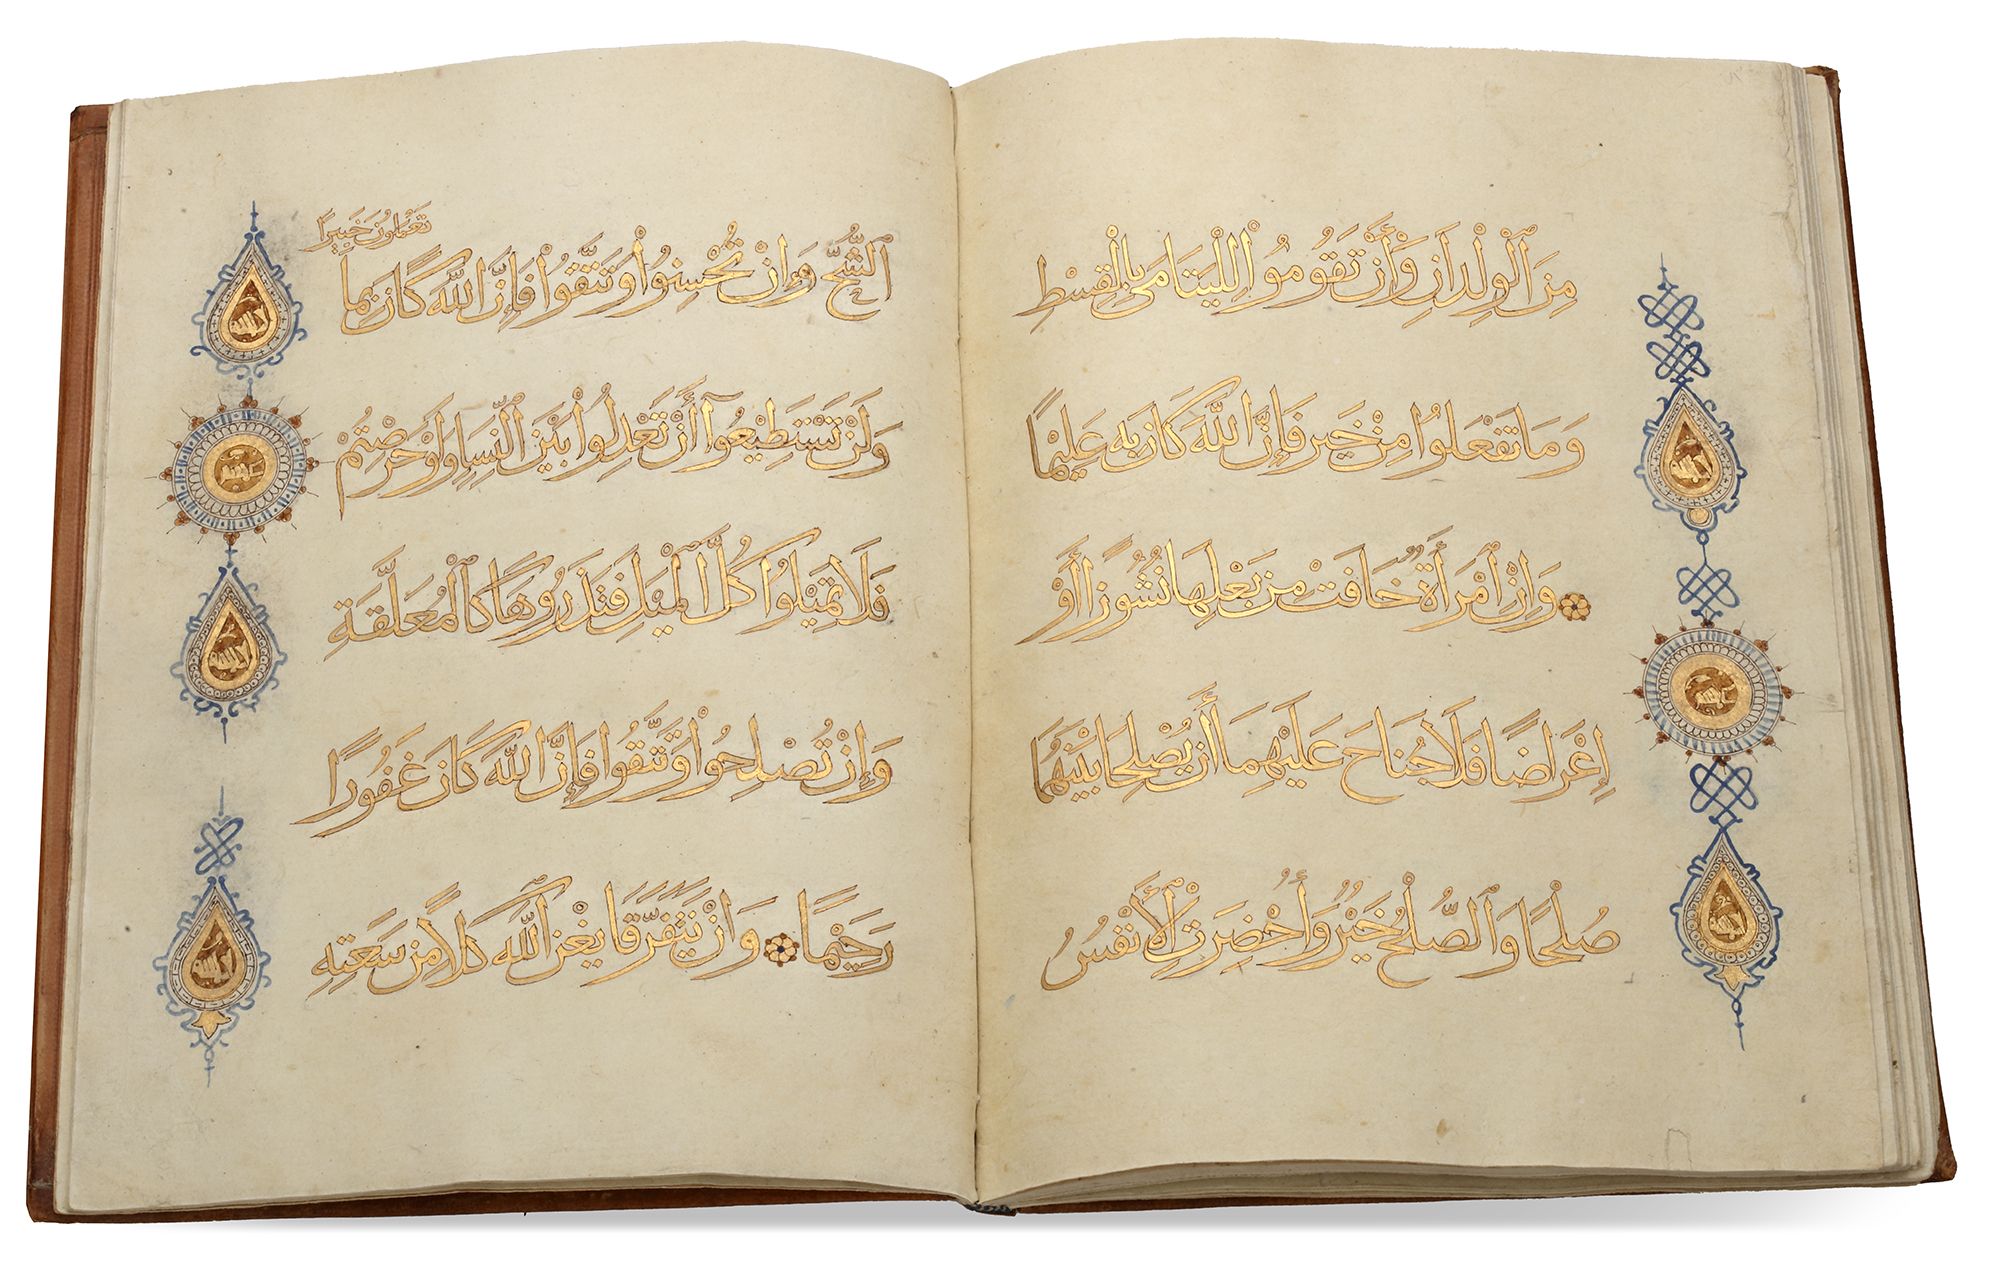 مِنَ ٱلْوِلْدَانِ وَأَنْ تَقُومُوا لِلْيَتَامَى بِالْقِسْطِ
وَمَا تَفْعَلُوا مِنْ خَيْرٍ فَإِنَّ اللَّهَ كَانَ بِهِ عَلِيمًا
وَإِنِ ٱمْرَأَةٌ خَافَتْ مِنْ بَعْلِهَا نُشُوزًا أَوْ
إِعْرَاضًا فَلَا جُنَاحَ عَلَيْهِمَا أَنْ يُصْلِحَا بَيْنَهُمَا
صُلْحًا وَٱلصُّلْحُ خَيْرٌ وَأُحْضِرَتِ ٱلْأَنْفُسُ
ٱلشُّحَّ وَإِنْ تُحْسِنُوا وَتَتَّقُوا فَإِنَّ اللَّهَ كَانَ بِمَا
تَعْمَلُونَ خَبِيرًا
وَلَنْ تَسْتَطِيعُوٓا أَنْ تَعْدِلُوا بَيْنَ ٱلنِّسَاءِ وَلَوْ حَرَصْتُمْ
فَلَا تَمِيلُوا كُلَّ ٱلْمَيْلِ فَتَذَرُوهَا كَٱلْمُعَلَّقَةِ
وَإِنْ تُصْلِحُوا وَتَتَّقُوا فَإِنَّ اللَّهَ كَانَ غَفُورًا
رَحِيمًا وَإِنْ يَتَفَرَّقَا يُغْنِ ٱللَّهُ كُلًّا مِنْ سَعَتِهِ